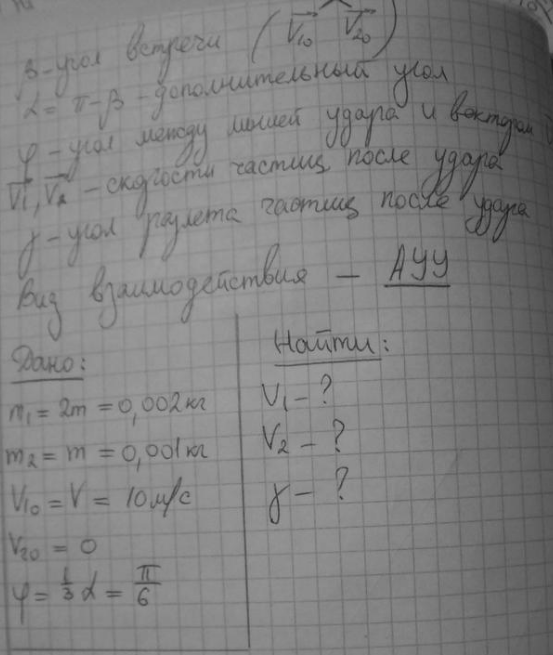 β-угол встречи (V₁₀ V₂₀)
α = π-β - дополнительный угол
φ - угол между линией удара и вектором
V₁, V₂ - скорости частиц после удара
γ - угол разлета частиц после удара
Вид взаимодействия - АУУ
Дано:
m₁ = 2m = 0,002 кг
m₂ = m = 0,001 кг
V₁₀ = V = 10 м/с
V₂₀ = 0
φ = 1/3 α = π/6
Найти:
V₁ - ?
V₂ - ?
γ - ?